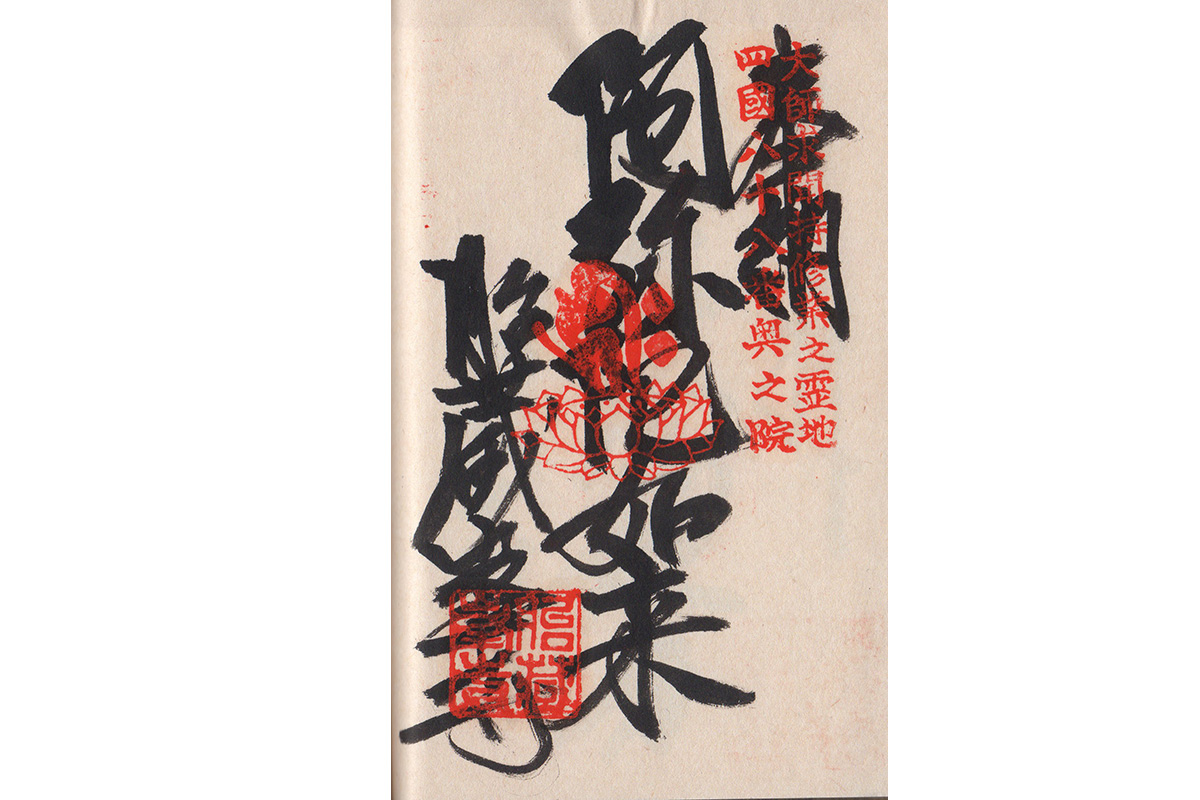 奉納
大師求聞持修業之霊地
四國八十八番奥之院
阿弥陀如来
胎蔵峯寺